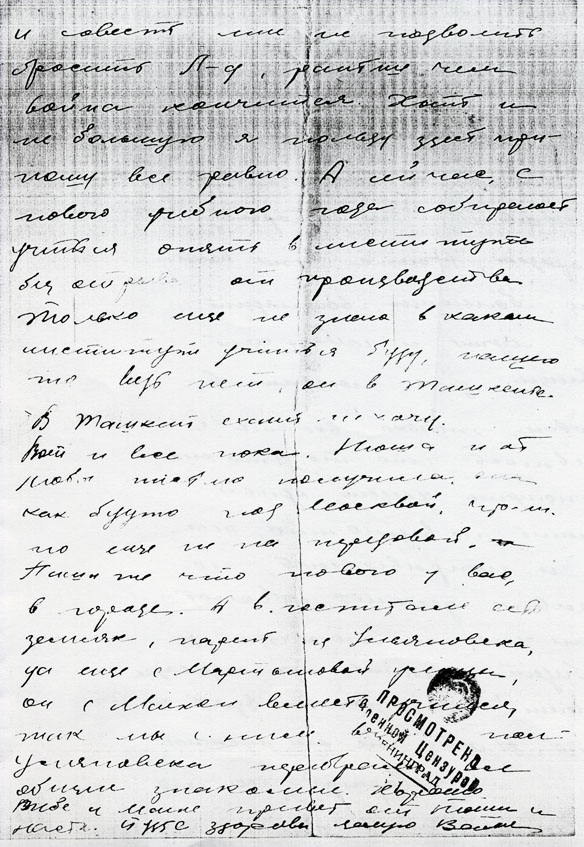 и совесть мне не подволить
бросить Л-д, раньше чем
война кончится. Хоть и
не большую я пользу здесь при-
ношу все равно. А сейчас, с
нового учебного года собираюсь
учиться опять в институте
без отрыва от производства
только еще не знаю в каком
институте учиться буду, нашего
то ведь нет, он в Ташкенте.
В Ташкент ехать не хочу.
Вот и все пока. Нюша и от
письмо получила она
как будто под Москвой,
но еще не на передовой.
Пиши же что нового у вас,
в городе. А в госпитале есть
земляк, парень из Ульяновска,
да еще с Мартыновой улицы,
он с Милкой вместе
так мы с ним
Ульяновска
общих знакомых.
и Мане привет от Тоши и
Насти. здоровы целую
ПРОСМОТРЕНО
Военной Цензурой
ЛЕНИНГРАД